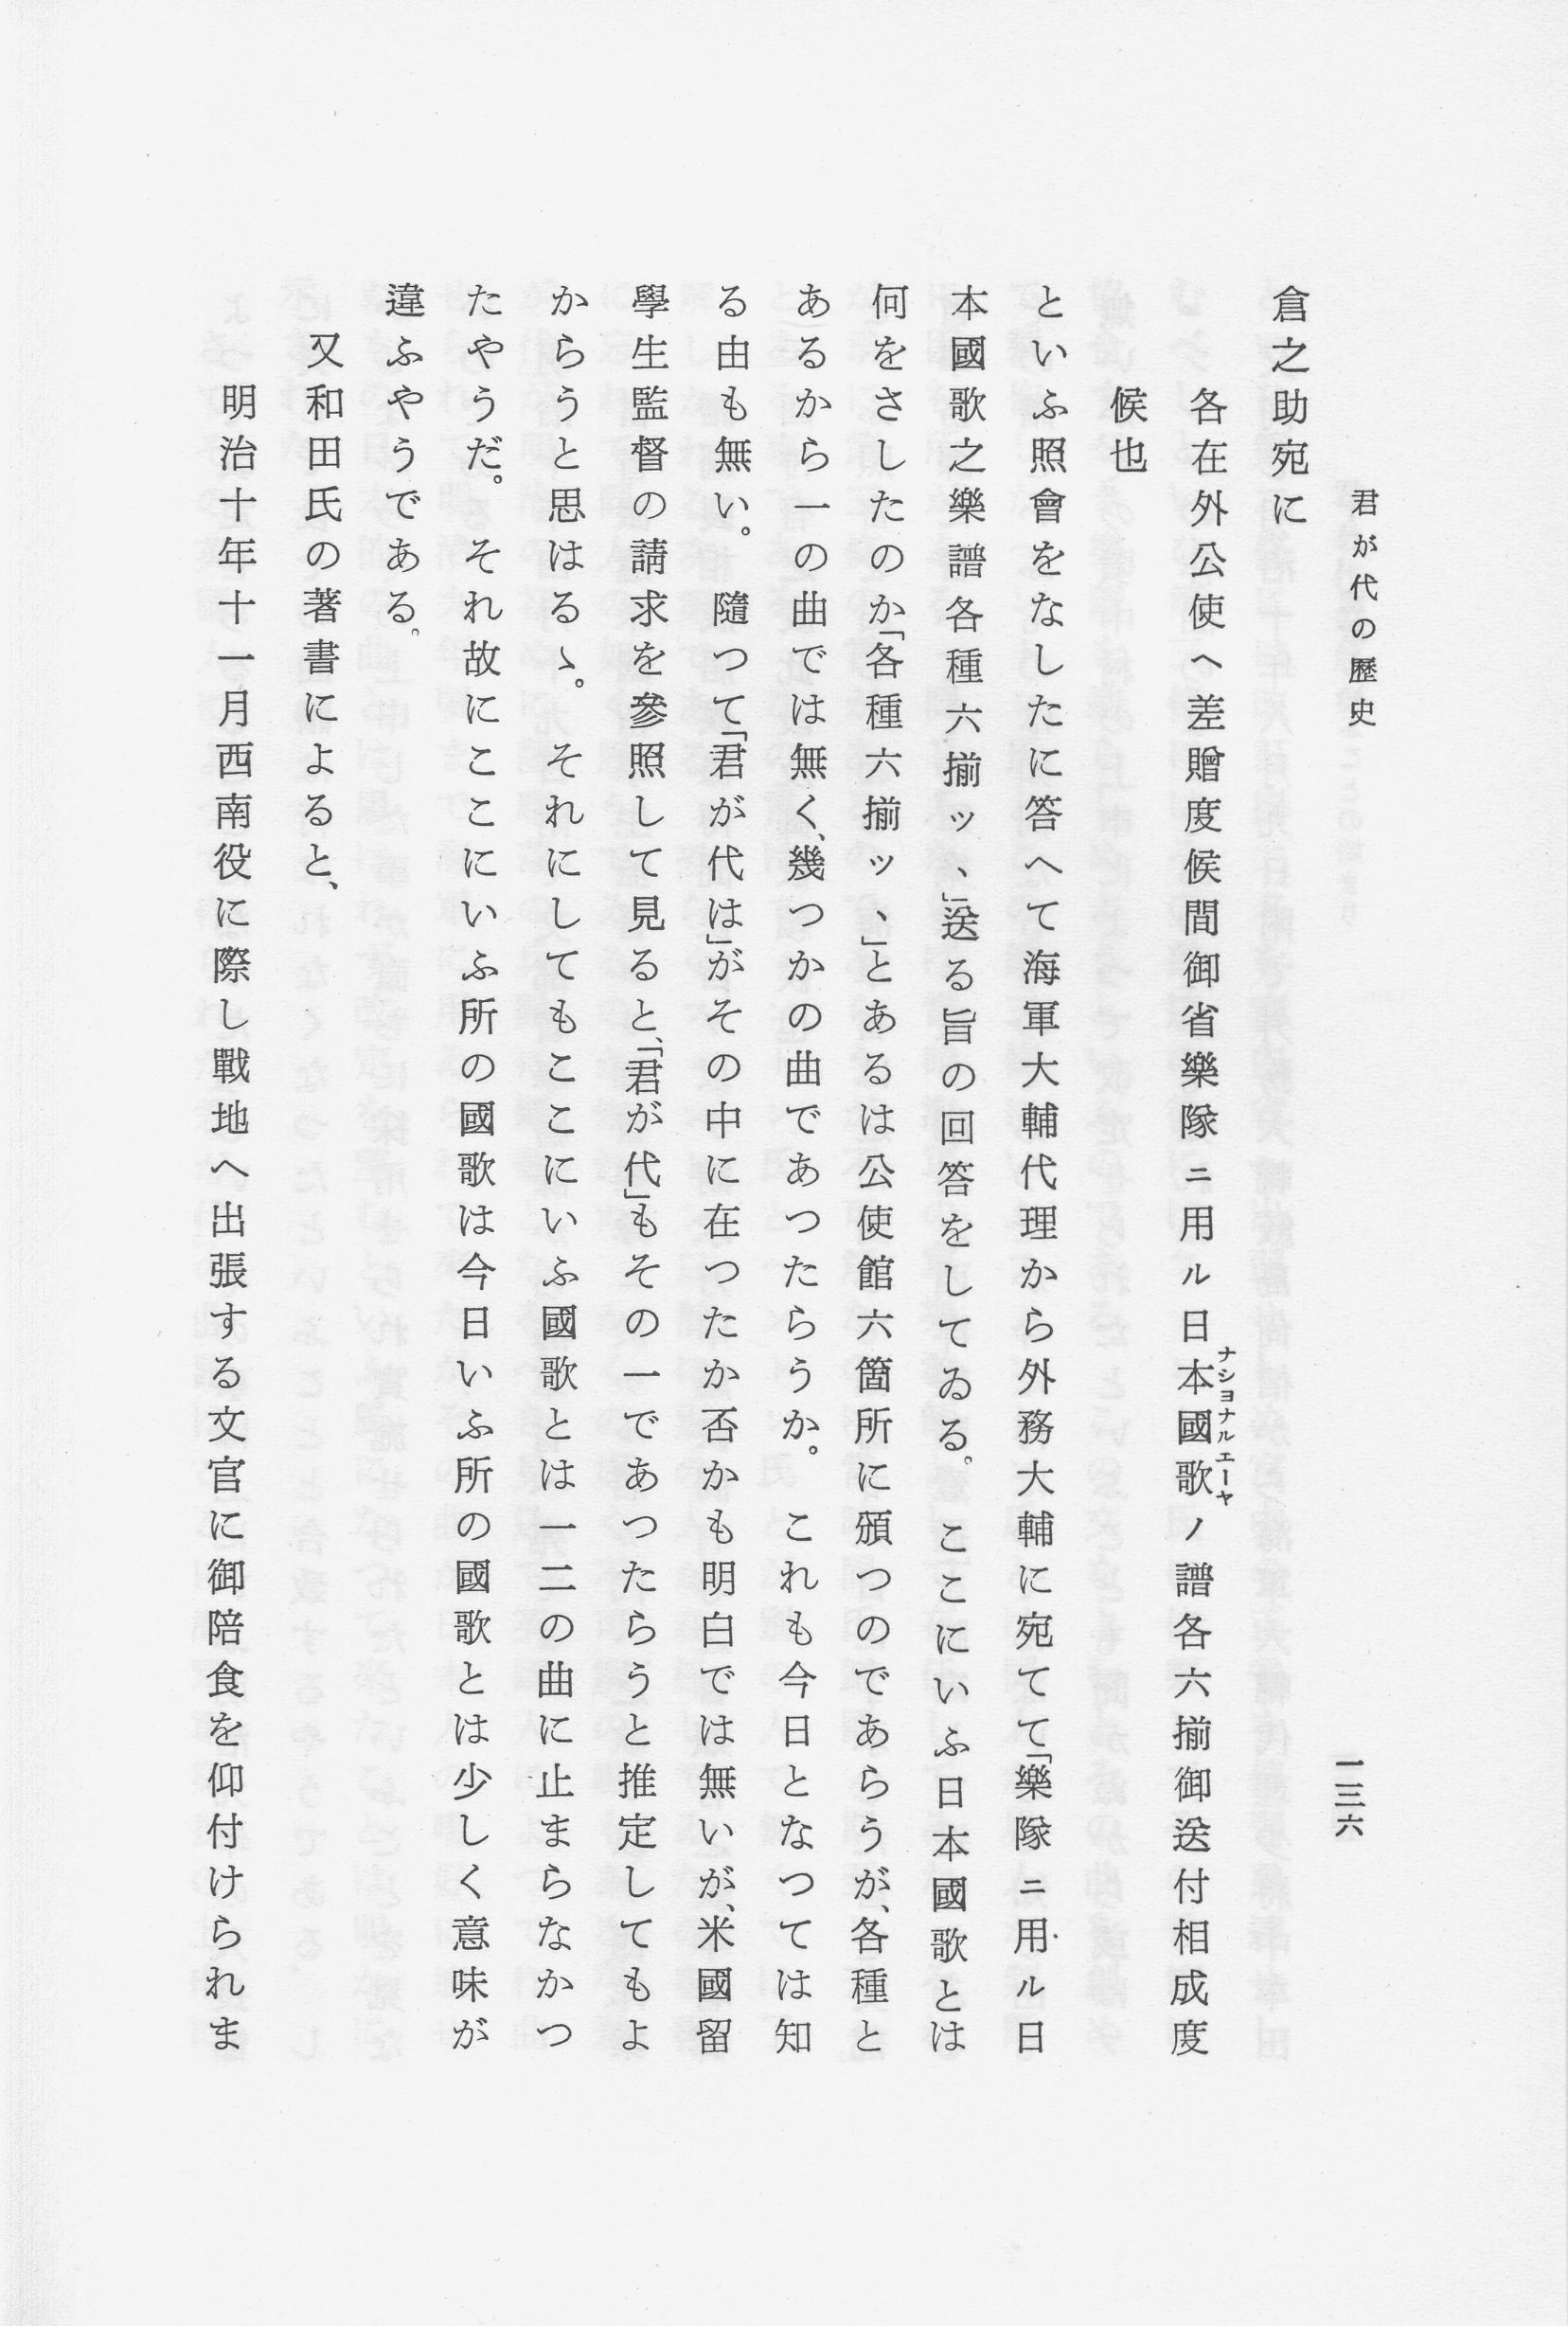 君が代の歷史
一三六
倉之助宛に
各在外公使へ差贈度候間御省樂隊ニ用ル日本國歌ノ譜各六揃御送付相成度
ナショナルエーヤ
候也
といふ照會をなしたに答へて海軍大輔代理から外務大輔に宛てて「樂隊ニ用ル日
本國歌之樂譜各種六揃ッヽ」送る旨の回答をしてゐる。ここにいふ日本國歌とは
何をさしたのか「各種六揃ッヽ」とあるは公使館六箇所に頒つのであらうが、各種と
あるから一の曲では無く、幾つかの曲であつたらうか。これも今日となつては知
る由も無い。隨つて「君が代は」がその中に在つたか否かも明白では無いが、米國留
學生監督の請求を參照して見ると、「君が代」もその一であつたらうと推定してもよ
からうと思はるゝ。それにしてもここにいふ國歌とは一二の曲に止まらなかつ
たやうだ。それ故にここにいふ所の國歌は今日いふ所の國歌とは少しく意味が
違ふやうである。
又和田氏の著書によると、
明治十年十一月西南役に際し戰地へ出張する文官に御陪食を仰付けられま